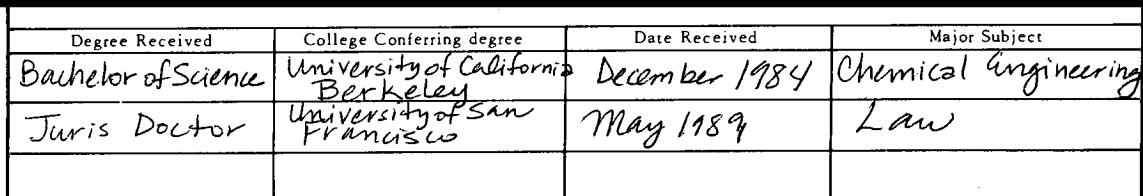 Degree Received College Conferring degree Date Received Major Subject
Bachelor of Science University of California Berkeley December 1984 Chemical Engineering
Juris Doctor University of San Francisco May 1989 Law